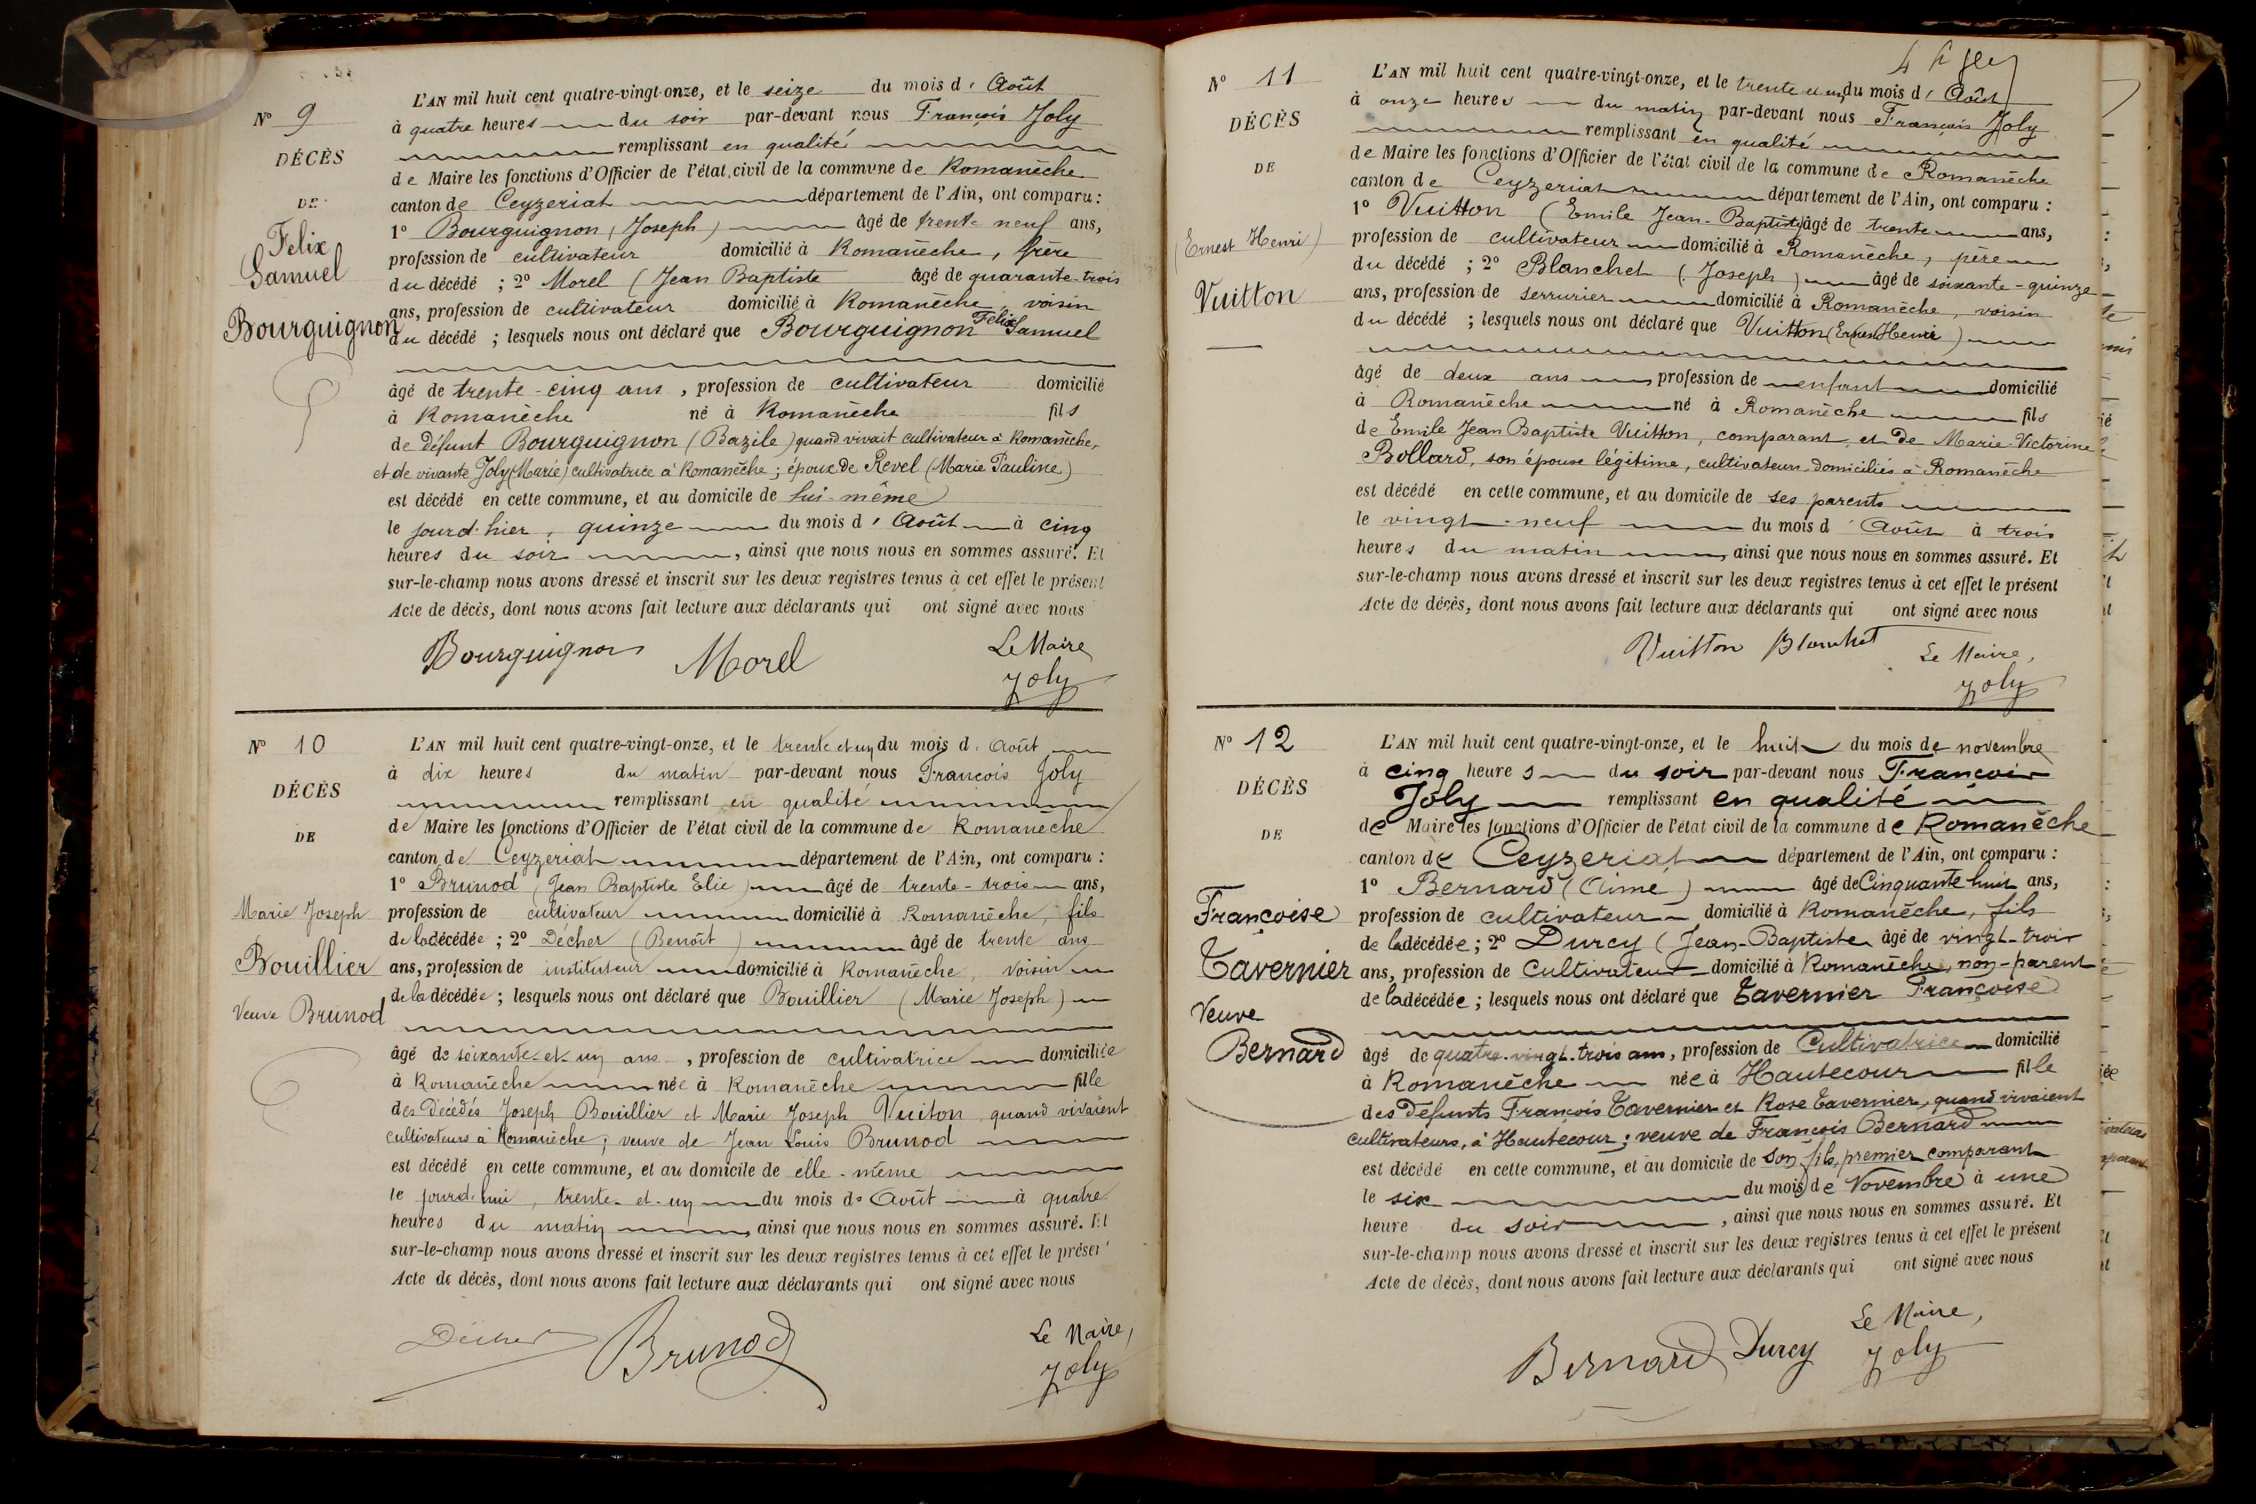 Nº 9
DÉCÈS
DE
Felix
Samuel
Bourguignon
L'AN mil huit cent quatre-vingt-onze, et le seize du mois d' Août
à quatre heures du soir par-devant nous François Joly
remplissant en qualité
de Maire les fonctions d'Officier de l'état civil de la commune de Romanèche
canton de Ceyzeriat département de l'Ain, ont comparu :
1º Bourguignon (Joseph) âgé de trente neuf ans,
profession de cultivateur domicilié à Romanèche, frère
du décédé ; 2º Morel (Jean Baptiste âgé de quarante-trois
ans, profession de cultivateur domicilié à Romanèche, voisin
du décédé ; lesquels nous ont déclaré que Bourguignon Felix Samuel
âgé de trente-cinq ans, profession de cultivateur domicilié
à Romanèche né à Romanèche fils
de défunt Bourguignon (Bazile) quand vivait cultivateur à Romanèche,
et de vivante Joly (Marie) cultivatrice à Romanèche ; époux de Revel (Marie Pauline)
est décédé en cette commune, et au domicile de lui-même
le jourd'hier, quinze du mois d' Août à cinq
heures du soir, ainsi que nous nous en sommes assuré. Et
sur-le-champ nous avons dressé et inscrit sur les deux registres tenus à cet effet le présent
Acte de décès, dont nous avons fait lecture aux déclarants qui ont signé avec nous
Bourguignon Morel Le Maire
Joly
Nº 10
DÉCÈS
DE
Marie Joseph
Bouillier
Veuve Brunod
L'AN mil huit cent quatre-vingt-onze, et le trente et un du mois d' Août
à dix heures du matin par-devant nous François Joly
remplissant en qualité
de Maire les fonctions d'Officier de l'état civil de la commune de Romanèche
canton de Ceyzeriat département de l'Ain, ont comparu :
1º Brunod (Jean Baptiste Elie) âgé de trente-trois ans,
profession de cultivateur domicilié à Romanèche, fils
de la décédée ; 2º Décher (Benoît) âgé de trente ans
ans, profession de instituteur domicilié à Romanèche, voisin
de la décédée ; lesquels nous ont déclaré que Bouillier (Marie Joseph)
âgé de soixante-et-un ans, profession de cultivatrice domiciliée
à Romanèche née à Romanèche fille
des décédés Joseph Bouillier et Marie Joseph Vuiton quand vivaient
cultivateurs à Romanèche ; veuve de Jean Louis Brunod
est décédé en cette commune, et au domicile de elle-même
le jourd'hui, trente-et-un du mois d' Août à quatre
heures du matin, ainsi que nous nous en sommes assuré. Et
sur-le-champ nous avons dressé et inscrit sur les deux registres tenus à cet effet le présent
Acte de décès, dont nous avons fait lecture aux déclarants qui ont signé avec nous
Décher Brunod Le Maire,
Joly
Nº 11
DÉCÈS
DE
(Ernest Henri)
Vuitton
L'AN mil huit cent quatre-vingt-onze, et le trente et un du mois d' Août
à onze heures du matin par-devant nous François Joly
remplissant en qualité
de Maire les fonctions d'Officier de l'état civil de la commune de Romanèche
canton de Ceyzeriat département de l'Ain, ont comparu :
1º Vuitton (Emile Jean-Baptiste) âgé de trente ans,
profession de cultivateur domicilié à Romanèche, père
du décédé ; 2º Blanchet (Joseph) âgé de soixante-quinze
ans, profession de serrurier domicilié à Romanèche, voisin
du décédé ; lesquels nous ont déclaré que Vuitton (Ernest Henri)
âgé de deux ans profession de enfant domicilié
à Romanèche né à Romanèche fils
de Emile Jean Baptiste Vuitton, comparant, et de Marie-Victorine
Bollard, son épouse légitime, cultivateurs domiciliés à Romanèche
est décédé en cette commune, et au domicile de ses parents
le vingt-neuf du mois d' Août à trois
heures du matin, ainsi que nous nous en sommes assuré. Et
sur-le-champ nous avons dressé et inscrit sur les deux registres tenus à cet effet le présent
Acte de décès, dont nous avons fait lecture aux déclarants qui ont signé avec nous
Vuitton Blanchet Le Maire,
Joly
Nº 12
DÉCÈS
DE
Françoise
Tavernier
Veuve
Bernard
L'AN mil huit cent quatre-vingt-onze, et le huit du mois de novembre
à cinq heures du soir par-devant nous François
Joly remplissant en qualité
de Maire les fonctions d'Officier de l'état civil de la commune de Romanèche
canton de Ceyzeriat département de l'Ain, ont comparu :
1º Bernard (Aimé) âgé de Cinquante huit ans,
profession de cultivateur domicilié à Romanèche, fils
de la décédée ; 2º Durcy (Jean-Baptiste âgé de vingt-trois
ans, profession de Cultivateur domicilié à Romanèche, non-parent
de la décédée ; lesquels nous ont déclaré que Tavernier Françoise
âgé de quatre-vingt-trois ans, profession de Cultivatrice domicilié
à Romanèche née à Hautecour fille
des défunts François Tavernier et Rose Tavernier, quand vivaient
cultivateurs, à Hautecour ; veuve de François Bernard
est décédé en cette commune, et au domicile de son fils, premier comparant
le six du mois de Novembre à une
heure du soir, ainsi que nous nous en sommes assuré. Et
sur-le-champ nous avons dressé et inscrit sur les deux registres tenus à cet effet le présent
Acte de décès, dont nous avons fait lecture aux déclarants qui ont signé avec nous
Bernard Durcy Le Maire,
Joly